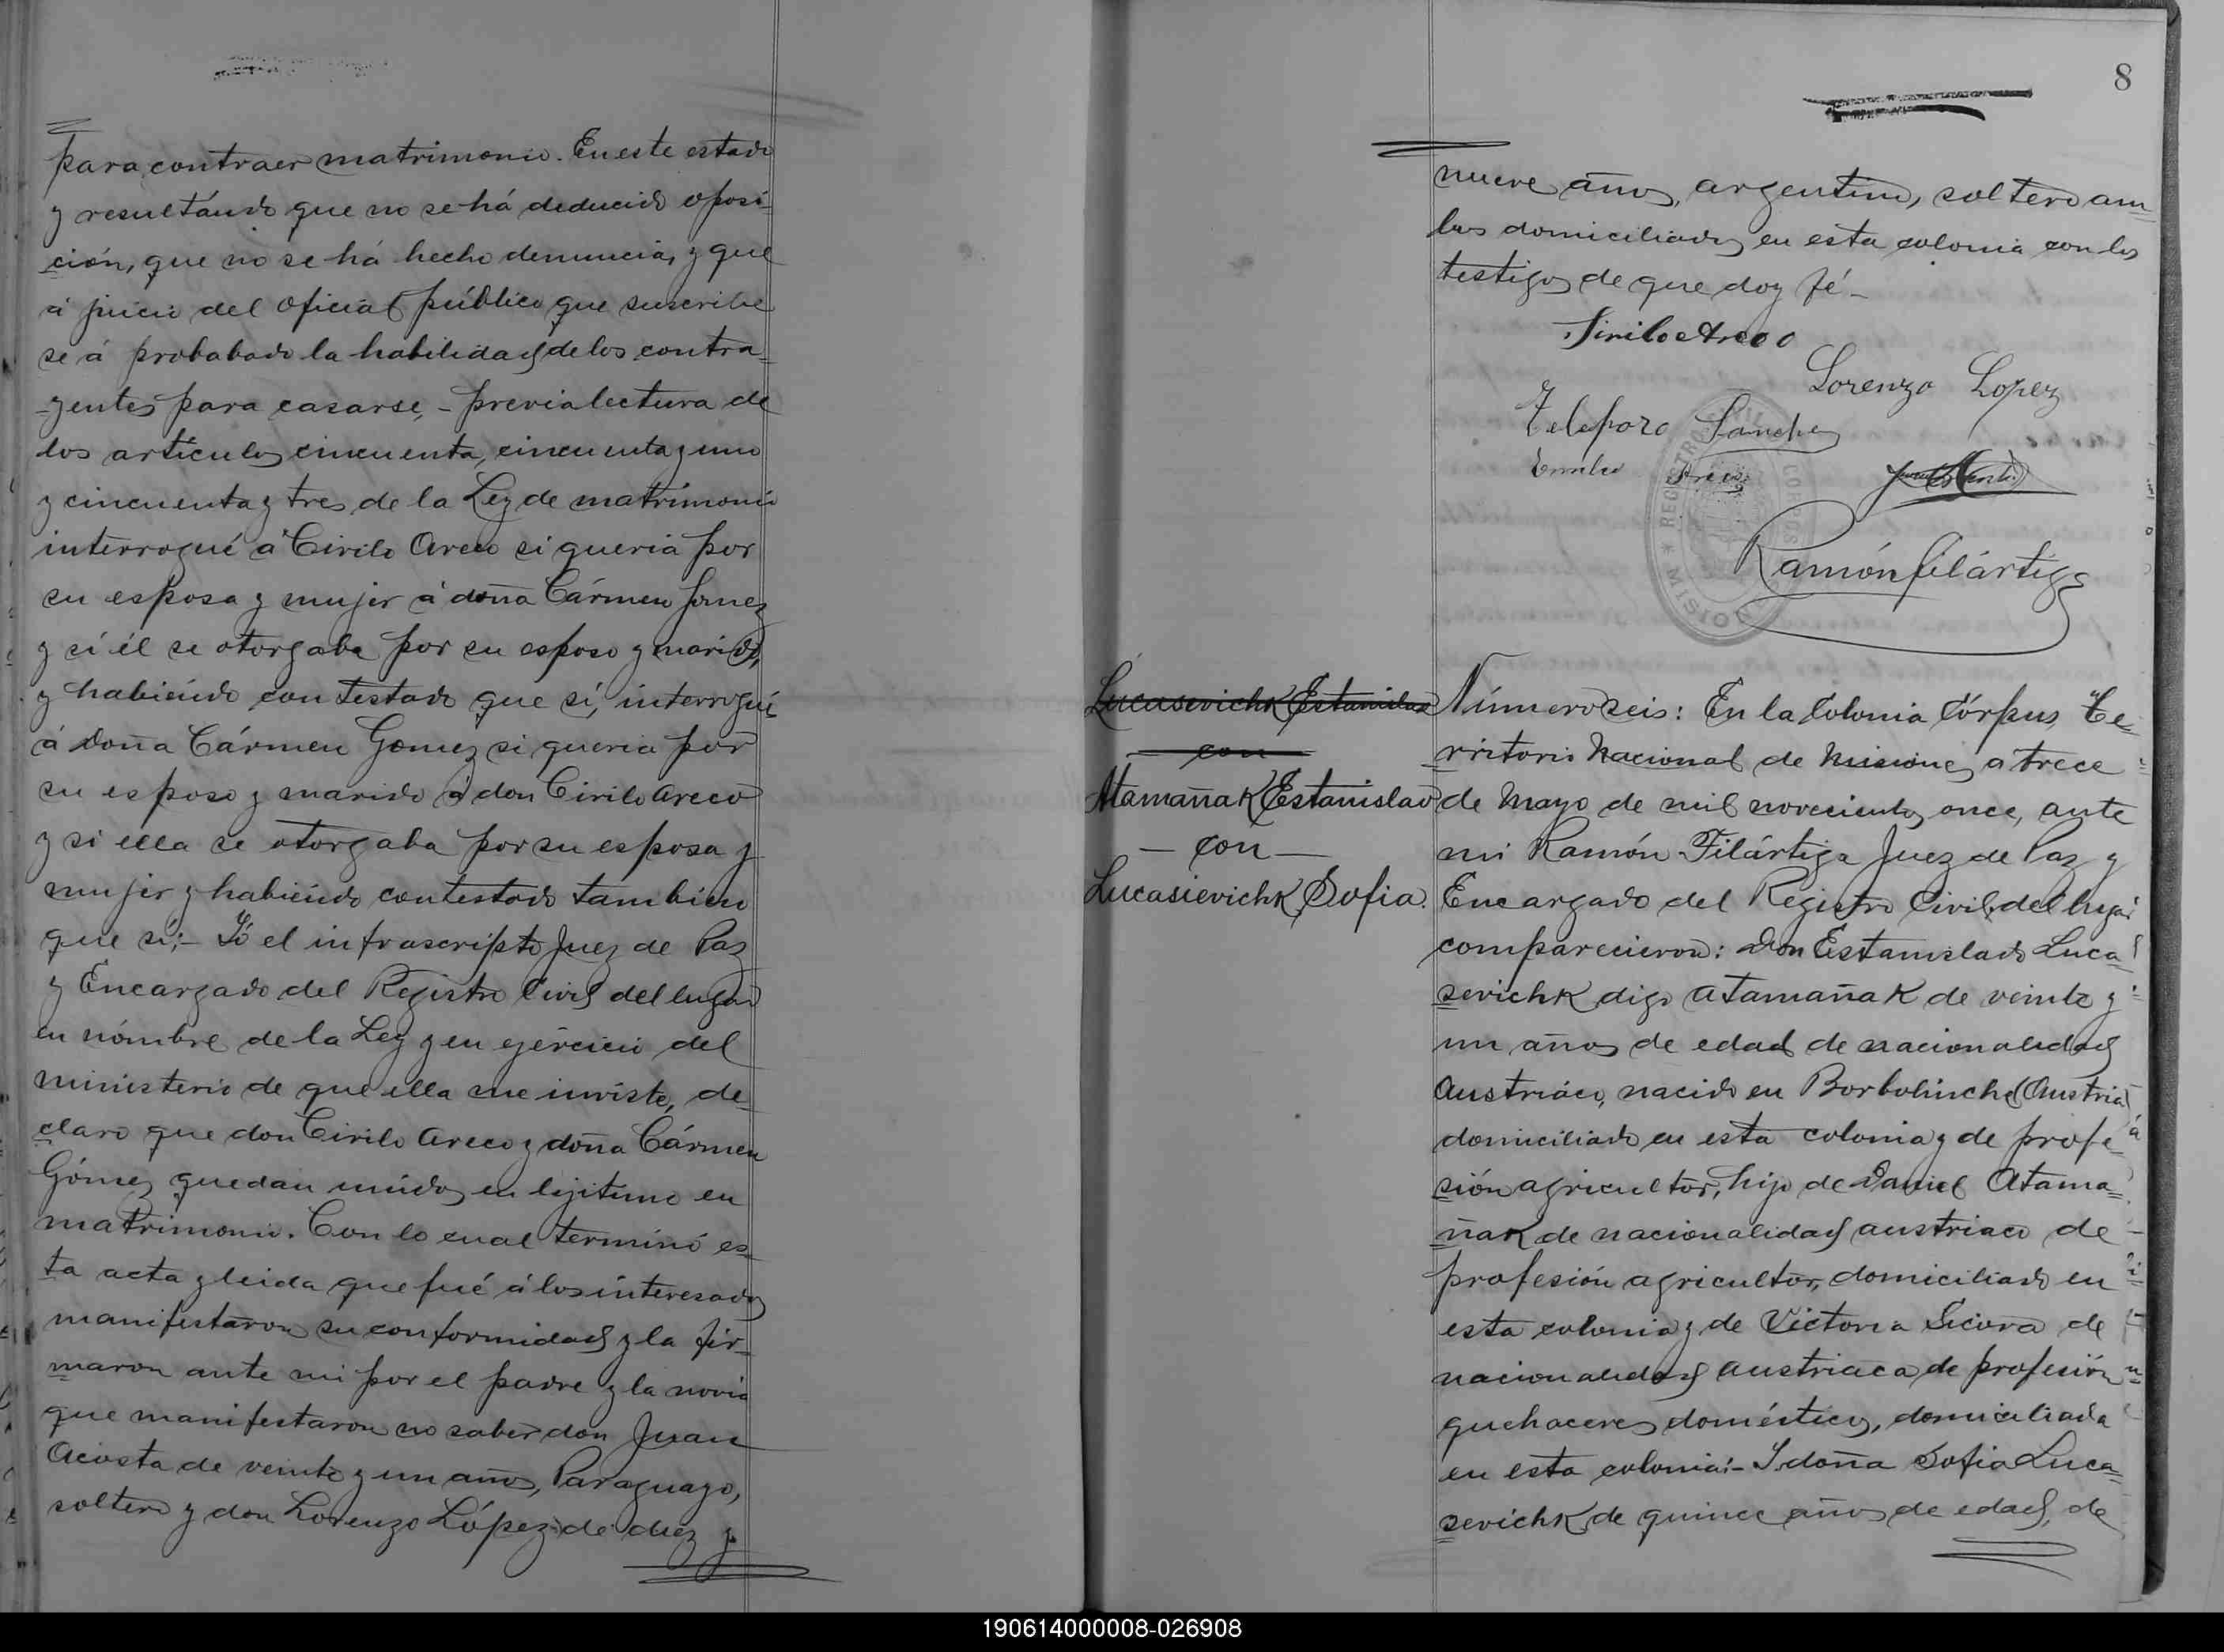 para contraer matrimonio. En este estado
y resultándo que no se há deducido oposi-
ción, que no se há hecho denuncia, y que
á juicio del oficial público que suscribe
se á probabado la habilidad de los contra-
-yentes para casarse, - previa lectura de
los artículos cincuenta, cincuenta y uno
y cincuenta y tres de la Ley de matrimonio
interrogué á Cirilo Areco si queria por
su esposa y mujer á doña Cármen Gomez
y si él se otorgaba por su esposo y marido,
y habiéndo contestado que sí, interrogué
á doña Cármen Gomez si queria por
su esposo y marido á don Cirilo Areco
y si ella se otorgaba por su esposa y
mujer y habiéndo contestado tambien
que si;- Yó el infrascripto Juez de Paz
y Encargado del Registro Civil del lugar
en nómbre de la Ley y en ejércicio del
ministerio de que ella me inviste, de-
claro que don Cirilo Areco y doña Cármen
Gómez quedan unidos en lejitimo en
matrimonio. Con lo cual terminó es-
ta acta y leida que fué á los interesados
manifestaron su conformidad y la fir-
maron ante mi por el padre y la novia
que manifestaron no saber don Juan
Acosta de veinte y un años, Paraguayo,
soltero y don Lorenzo López de diez y
8
nueve años, argentino, soltero am-
bos domiciliados en esta colonia con los
testigos de que doy fé-
Sirilo Areco
Lorenzo Lopez
Telesforo Sanchez
Emilio
Ramón Filártiga
Lucasevichk Estanislao
con
Atamañak Estanislao
- con -
Lucasievichk Sofia.
Número seis: En la Colonia Córpus, Te-
rritorio Nacional de Misiones, a trece
de Mayo de mil novecientos once, ante
mi Ramón Filártiga Juez de Paz y
Encargado del Registro Civil, del lugar
comparecieron: Don Estanislado Luca-
sevichk digo Atamañak de veinte y
un años de edad de nacionalidad
Austriáco, nacido en Borbolinche (Austria)
domiciliado en esta colonia y de profe-
sión agricultor, hijo de Daniel Atama-
ñak de nacionalidad austriaco de
profesión agricultor, domiciliado en
esta colonia y de Victoria Sicora de
nacionalidad austriaca, de profesión
quehaceres domésticos, domiciliada
en esta colonia:- Y doña Sofia Luca-
sevichk de quince años de edad, de
190614000008-026908